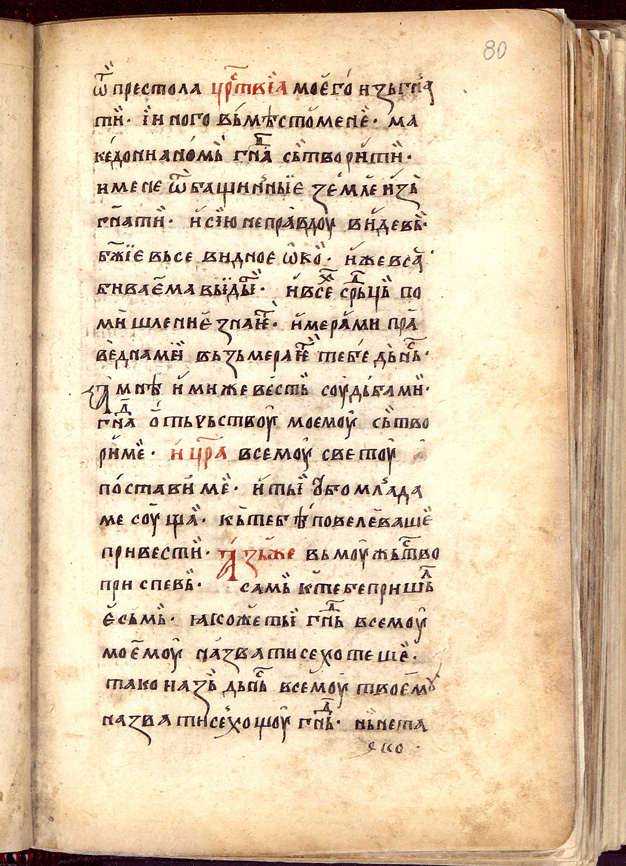 80
ѿ прѣстола црⷭ҇твіꙗ моего̀ изьгнa
ти· і҆ иного вьмѣсто мене· ма
кедониꙗномь гнⷭ҇а сьтворити·
имене ѿ бащинныіе земле изь
гнати· и҆ сїю неправдоу видевь·
бж҃їе вьсе видное ѡ҆ко· и҆же вса
бываема выідыі· и҆ все срⷣць по
мишление знаіе· и҆ мерами пра
ведными вьзьмераіе тебе дьнⷭ҇ь·
А мнѣ и҆ми же весть соудьбами·
гнⷭ҇а ѻ҆тьчьствоу моемоу сьтво
риме· и҆ цр҃а всемоу светоу
постави ме· и҆ тыі оубо млада
ме соуща· кь тебѣ повелеваше
привести· Азь же вь моужьⷭ҇тво
приспевь· самь к тебе пришьⷧ
е҆сьмь· ꙗкоже тыі гнⷭ҇ь всемоу
моемоу назватисе хотеше·
тако и азь дьнⷭ҇ь всемоу твоемꙋ
назватисе хощоу гнⷭ҇ь· нь не та
ꙗко·